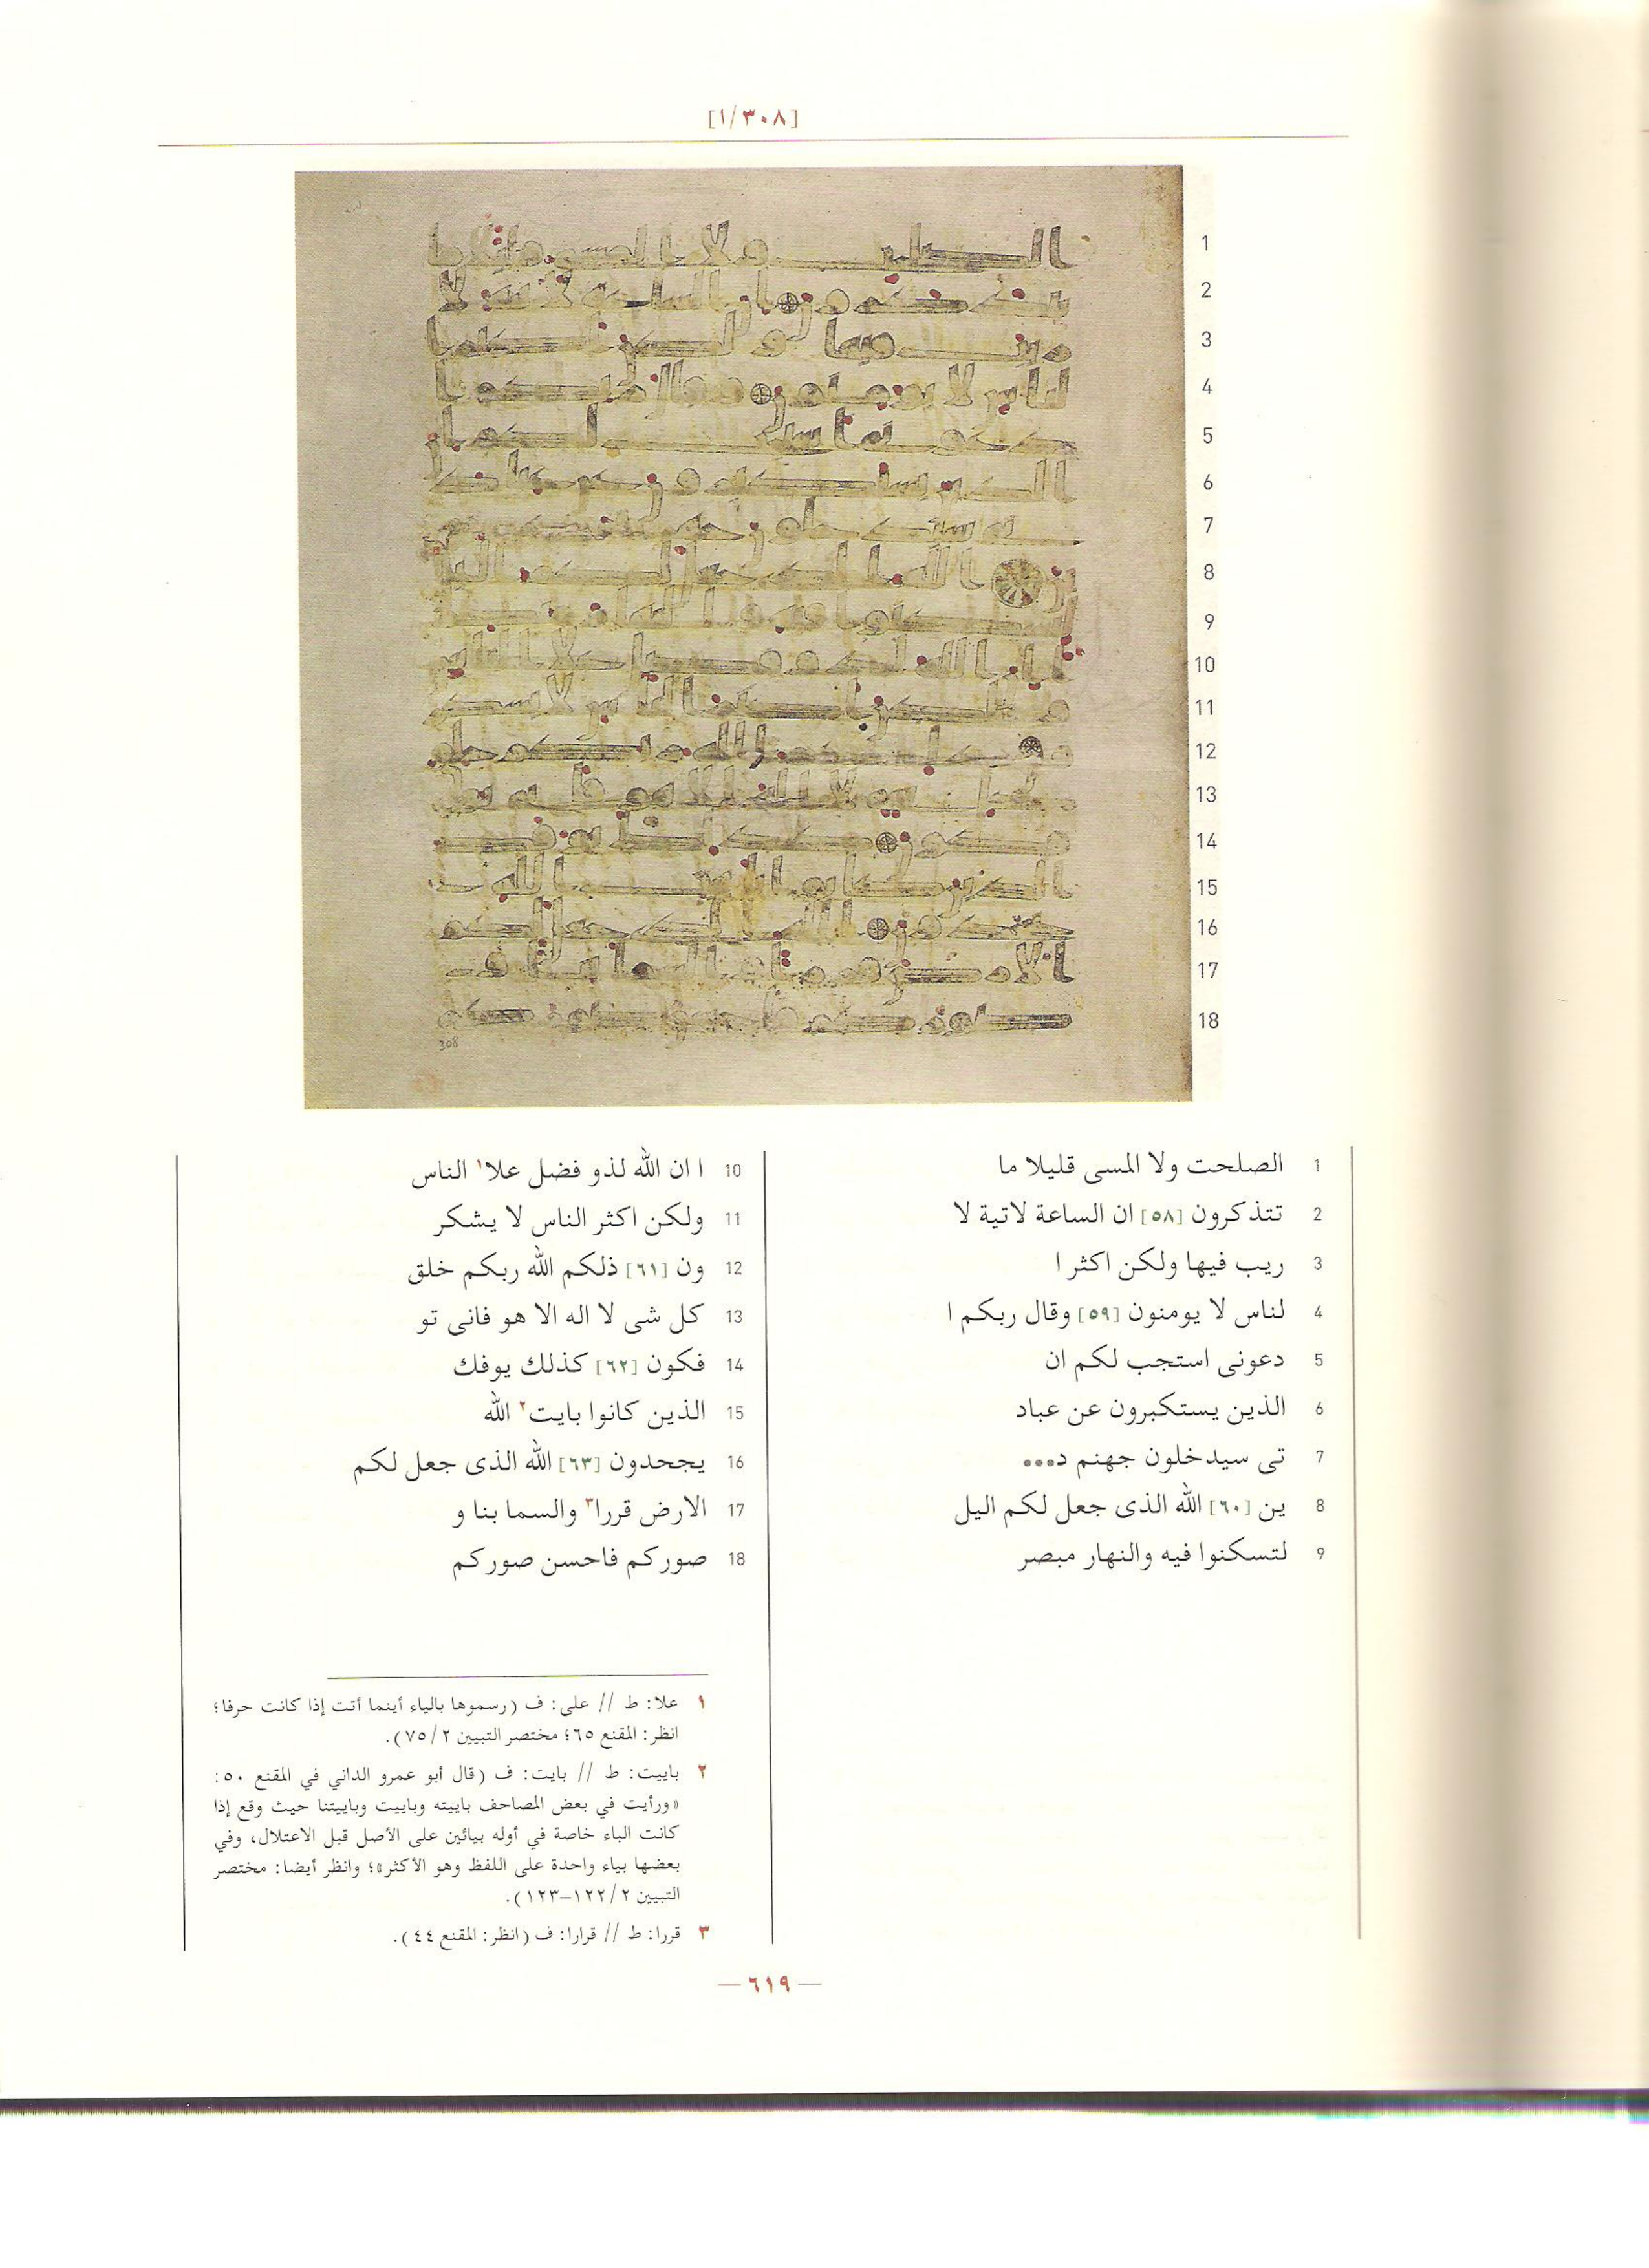 [١/٣٠٨]
1
2
3
4
5
6
7
8
9
10
11
12
13
14
15
16
17
18
308
1 الصلحت ولا المسى قليلا ما
2 تتذكرون [٥٨] ان الساعة لاتية لا
3 ريب فيها ولكن اكثر ا
4 لناس لا يومنون [٥٩] وقال ربكم ا
5 دعونى استجب لكم ان
6 الذين يستكبرون عن عباد
7 تى سيدخلون جهنم د•••
8 ين [٦٠] الله الذى جعل لكم اليل
9 لتسكنوا فيه والنهار مبصر
10 ا ان الله لذو فضل علا١ الناس
11 ولكن اكثر الناس لا يشكر
12 ون [٦١] ذلكم الله ربكم خلق
13 كل شى لا اله الا هو فانى تو
14 فكون [٦٢] كذلك يوفك
15 الذين كانوا بايت٢ الله
16 يجحدون [٦٣] الله الذى جعل لكم
17 الارض قررا٣ والسما بنا و
18 صوركم فاحسن صوركم
١ علا: ط // على: ف (رسموها بالياء أينما أتت إذا كانت حرفا؛
انظر: المقنع ٦٥؛ مختصر التبيين ٧٥/٢).
٢ باييت: ط // بايت: ف (قال أبو عمرو الداني في المقنع ٥٠:
«ورأيت في بعض المصاحف باييته وباييت وباييتنا حيث وقع إذا
كانت الباء خاصة في أوله بيائين على الأصل قبل الاعتلال، وفي
بعضها بياء واحدة على اللفظ وهو الأكثر»؛ وانظر أيضا: مختصر
التبيين ١٢٢/٢–١٢٣).
٣ قررا: ط // قرارا: ف (انظر: المقنع ٤٤).
— ٦١٩ —